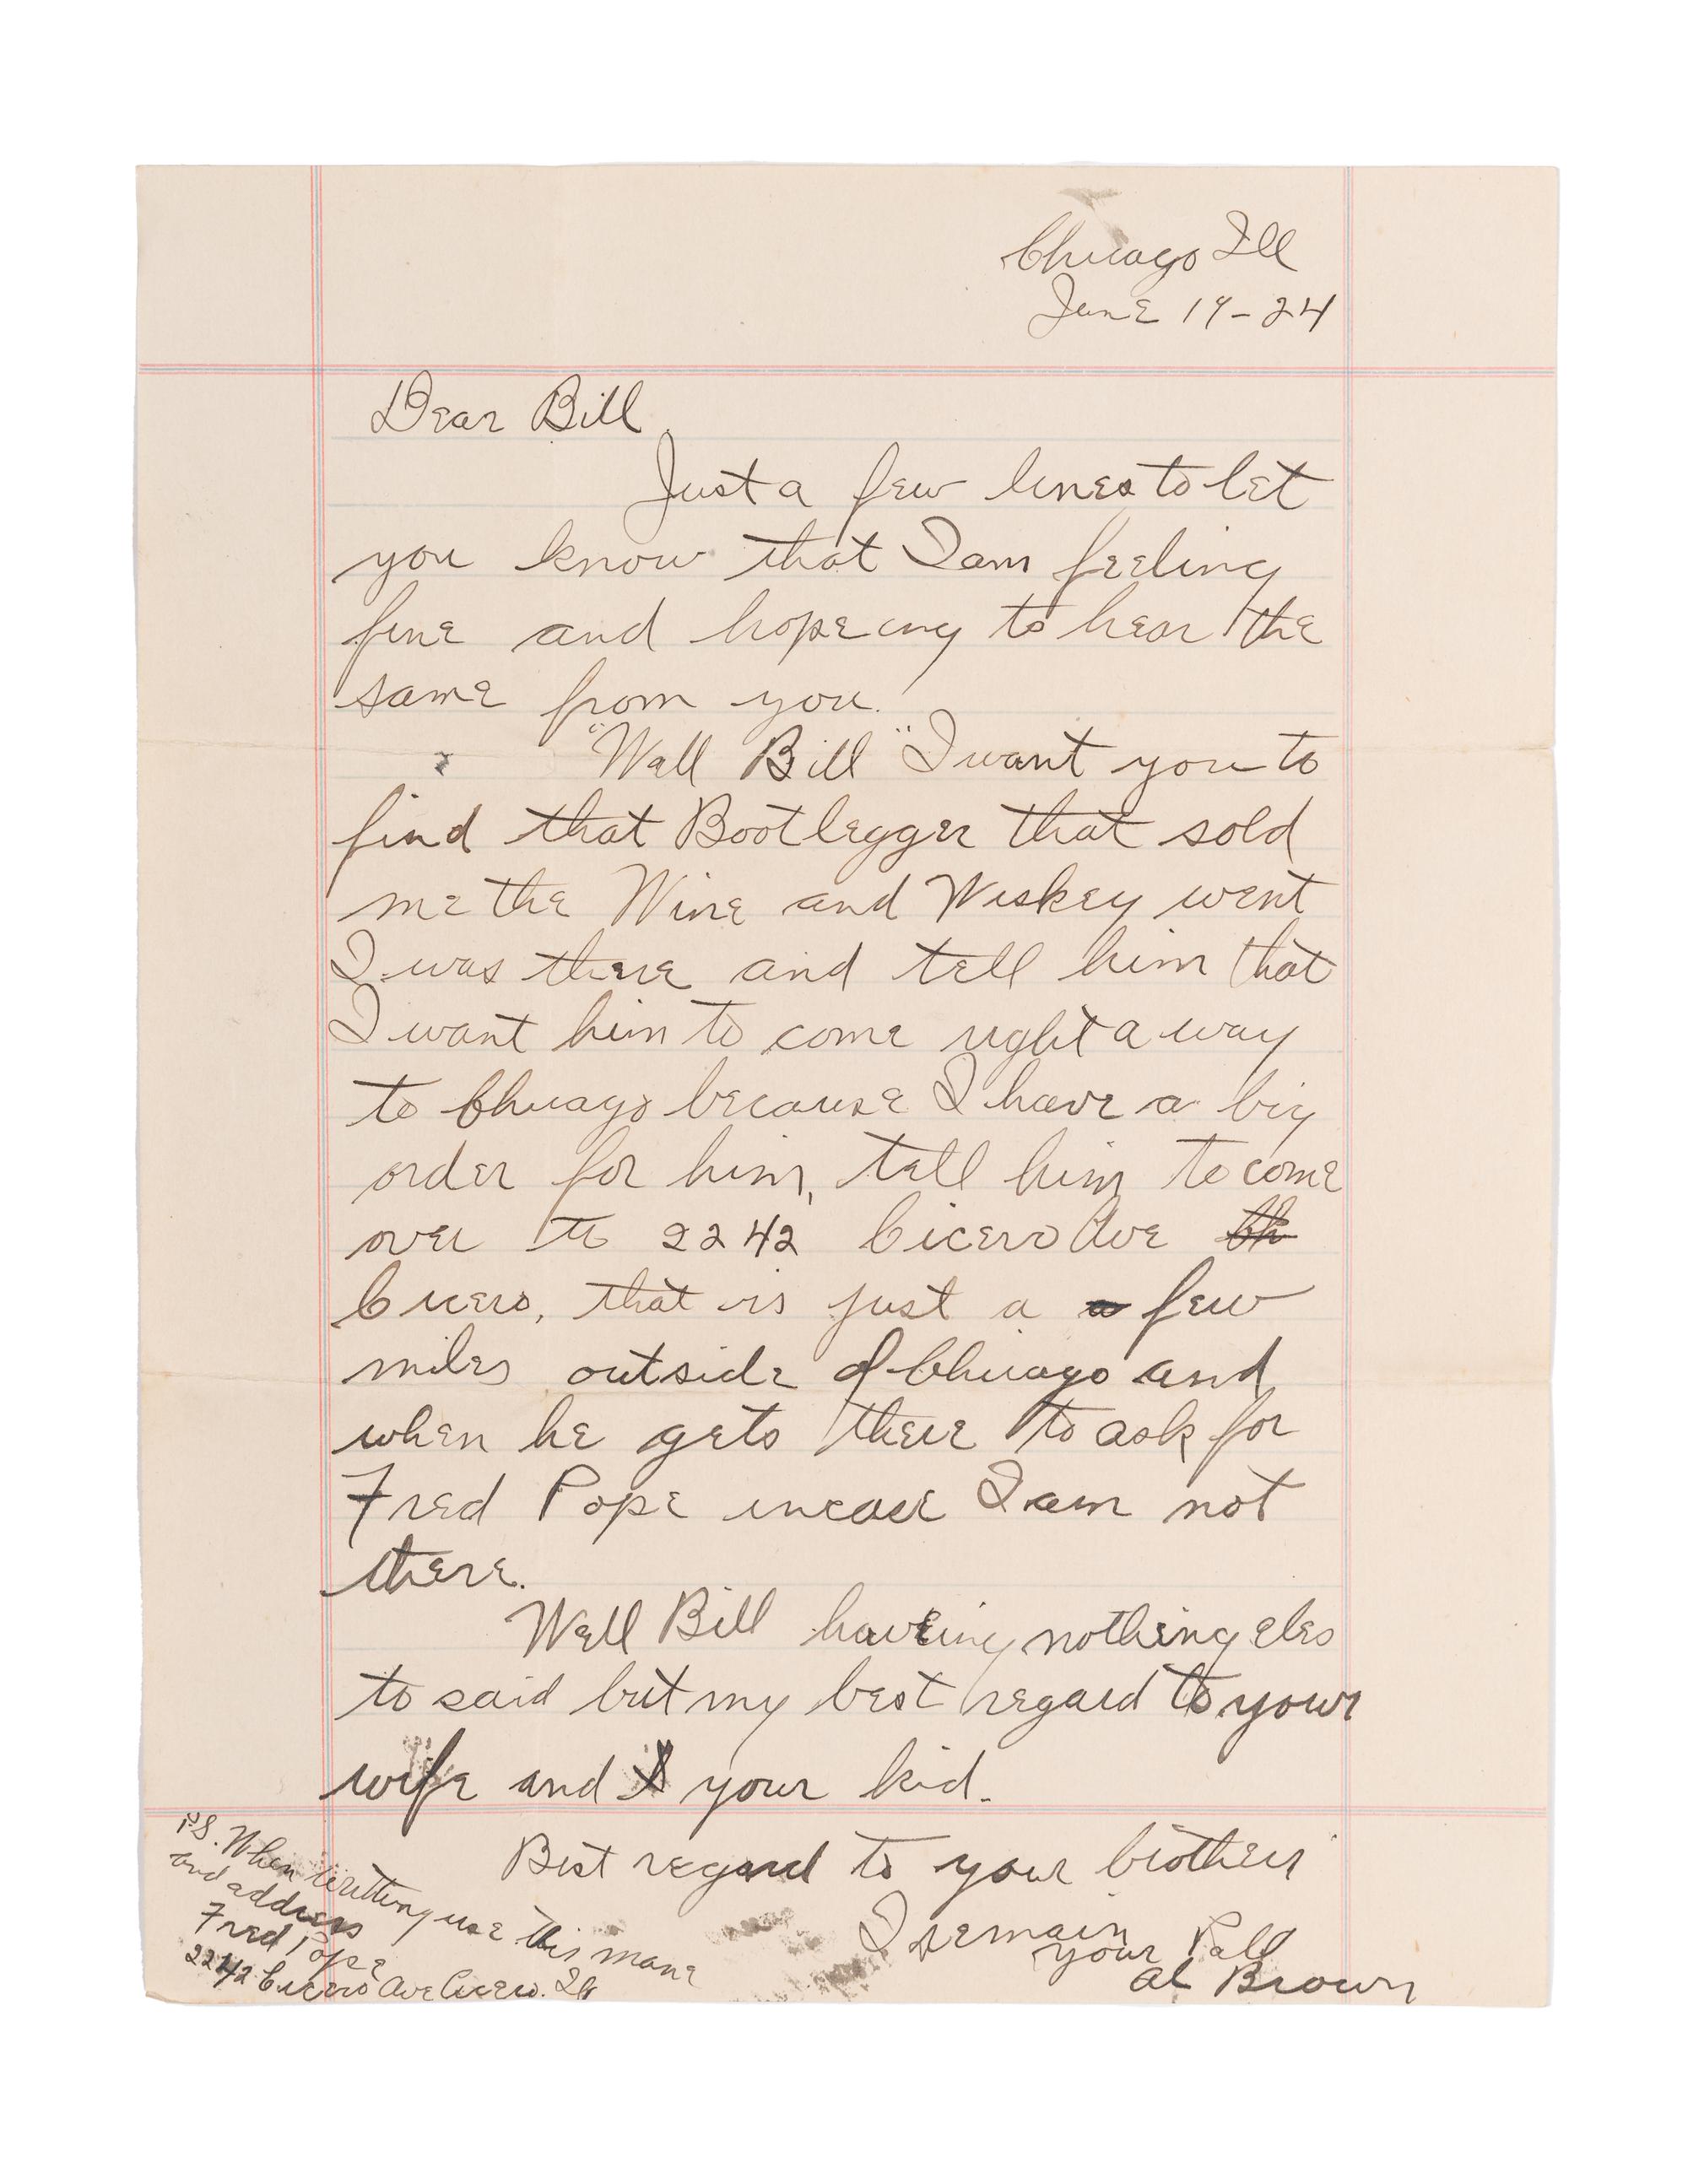 Chicago Ill
June 19-24
Dear Bill,
Just a few lines to let
you know that I am feeling
fine and hopeing to hear the
same from you.
"Well Bill" I want you to
find that Bootlegger that sold
me the Wine and Wiskey went
I was there and tell him that
I want him to come right a way
to Chicago because I have a big
order for him, tell him to come
over to 2242 Cicero Ave Ch
Cicero, that is just a a few
miles outside of Chicago and
when he gets there to ask for
Fred Pope incase I am not
there.
Well Bill haveing nothing eles
to said but my best regard to your
wife and your kid.
Best regard to your brother
I remain
your Pall
Al Brown
P.S. When writting use this mane
and address
Fred Pope
2242 Cicero Ave Cicero. Ill